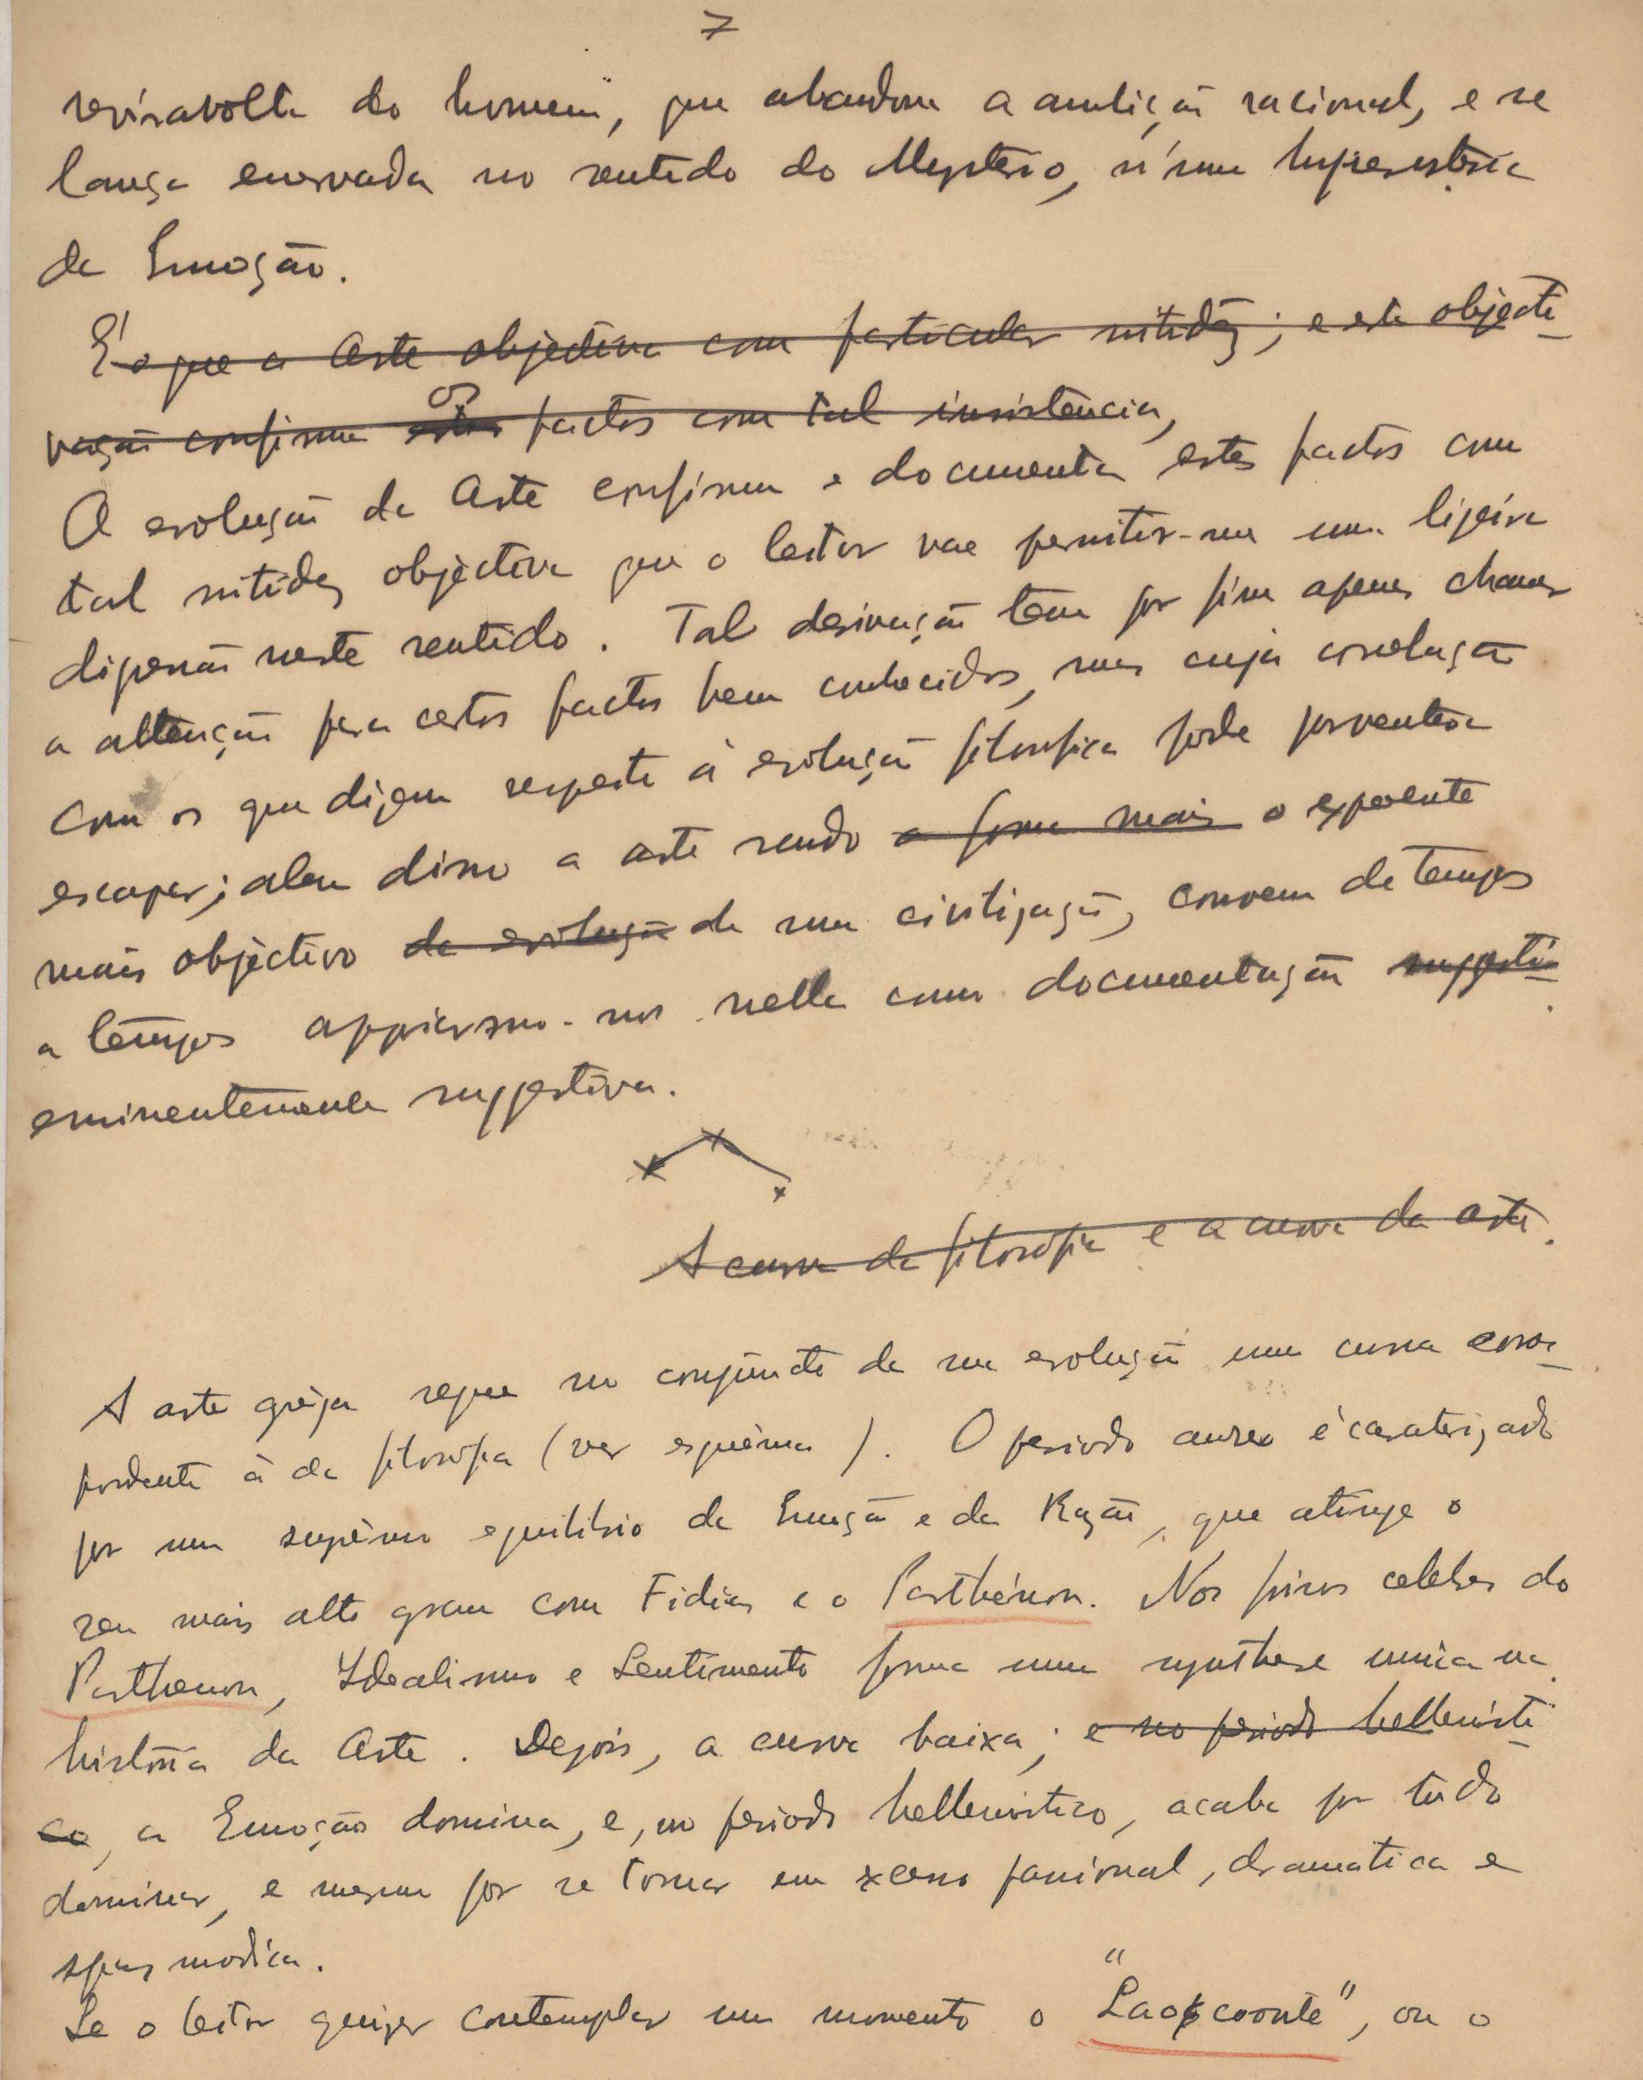 7
reviravolta do homem, que abandona a ambição racional, e se
lança enervada no sentido do Mysterio, n'uma hyperestesia
da Emoção.
É o que a Arte objectiva com particular nitidez; e esta objecti-
vação confirma estes os factos com tal insistencia,
A evolução da Arte confirma e documenta estes factos com
tal nitidez objectiva que o leitor vae permitir-me uma ligeira
digressão neste sentido. Tal derivação tem por fim apenas chamar
a attenção para certos factos bem conhecidos, mas cuja correlação
com os que dizem respeito à evolução filosofica pode porventura
escapar; alem disso a arte sendo a forma mais o expoente
mais objectivo da evolução de uma civilização, convem de tempos
a tempos apoiarmo-nos nella como documentação suggesti-
eminentemente suggestiva.
A curva da filosofia e a curva da arte.
A arte grega segue no conjuncto da sua evolução uma curva corres-
pondente à da filosofia (ver esquema). O periodo aureo é caraterizado
por um supremo equilibrio da Emoção e da Razão, que atinge o
seu mais alto grau com Fidias e o Parthénon. Nos frisos celebres do
Parthenon, Idealismo e Sentimento forma uma synthese unica na
historia da Arte. Depois, a curva baixa; e no periodo hellenisti-
co, a Emoção domina, e, no periodo hellenistico, acaba por tudo
dominar, e mesmo por se tornar em passional, dramatica e
spasmodica.
Se o leitor quizer contemplar um momento o "Laocoonte", ou o